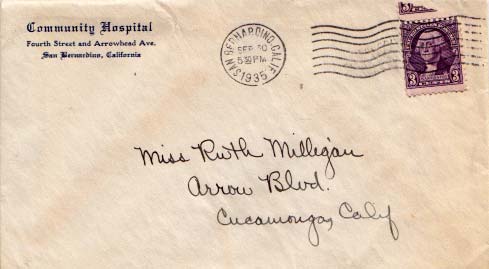 Community Hospital
Fourth Street and Arrowhead Ave.
San Bernardino, California
SAN BERNARDINO, CALIF.
SEP 30
5 30 PM
1935
3 3
Miss Ruth Milligan
Arrow Blvd.
Cucamonga, Calif